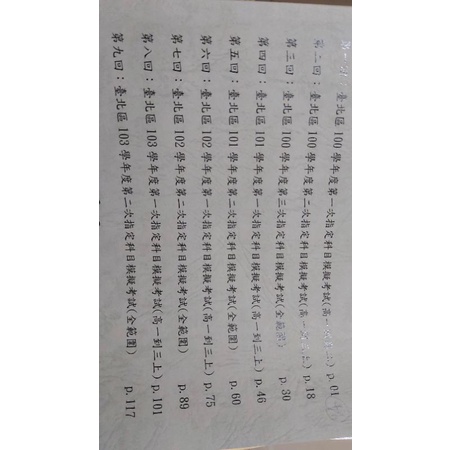 第一回：臺北區 100 學年度第一次指定科目模擬考試(高一到三上) p.01
第二回：臺北區 100 學年度第二次指定科目模擬考試(高一到三上) p.18
第三回：臺北區 100 學年度第三次指定科目模擬考試(全範圍) p.30
第四回：臺北區 101 學年度第一次指定科目模擬考試(高一到三上) p.46
第五回：臺北區 101 學年度第二次指定科目模擬考試(全範圍) p.60
第六回：臺北區 102 學年度第一次指定科目模擬考試(高一到三上) p.75
第七回：臺北區 102 學年度第二次指定科目模擬考試(全範圍) p.89
第八回：臺北區 103 學年度第一次指定科目模擬考試(高一到三上) p.101
第九回：臺北區 103 學年度第二次指定科目模擬考試(全範圍) p.117